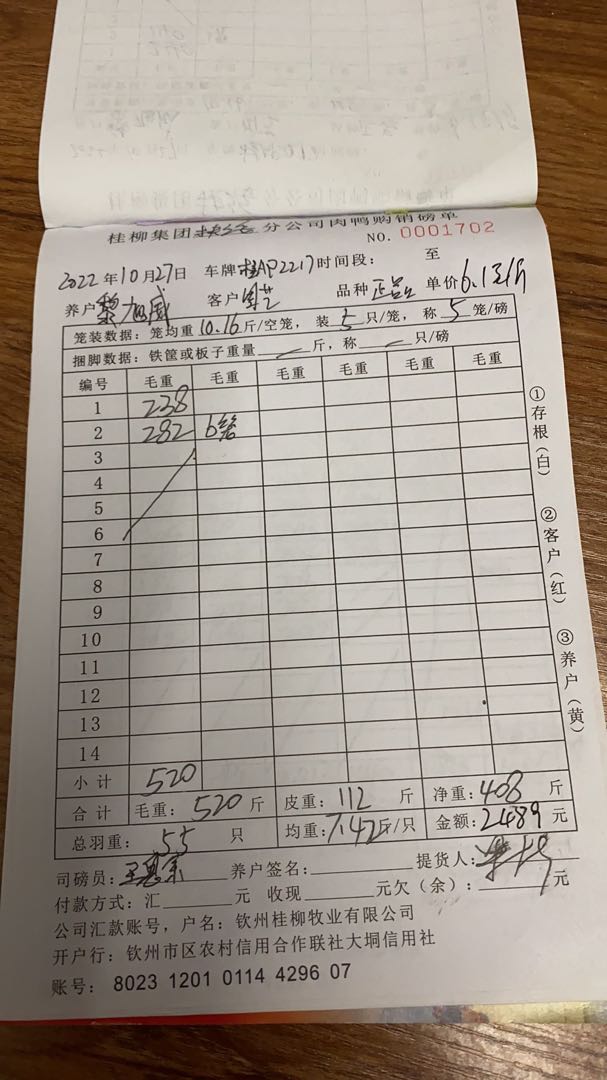 桂柳集团 分公司肉鸭购销磅单
NO. 0001702
2022年10月27日 车牌桂AP2217时间段: 至
养户黎旭威 客户 品种正品 单价6.1
笼装数据: 笼均重10.16斤/空笼, 装5只/笼, 称5笼/磅
捆脚数据: 铁筐或板子重量 斤, 称 只/磅
编号 毛重 毛重 毛重 毛重 毛重 毛重
1 238
2 282 6笼
3
4
5
6
7
8
9
10
11
12
13
14
小计 520
合计 毛重: 520斤 皮重: 112斤 净重: 408斤
总羽重: 55只 均重: 7.42斤/只 金额: 2489元
司磅员: 养户签名: 提货人:
付款方式: 汇 元 收现 元欠(余): 元
公司汇款账号, 户名: 钦州桂柳牧业有限公司
开户行: 钦州市区农村信用合作联社大垌信用社
账号: 8023 1201 0114 4296 07
①存根(白)
②客户(红)
③养户(黄)